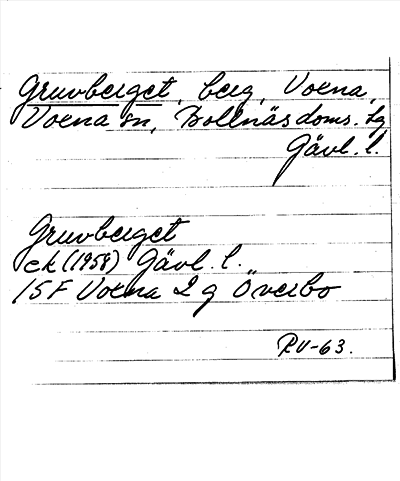 Gruvberget, berg, Voxna,
Voxna sn, Bollnäs doms. lg
Gävl. l.
Gruvberget
ek (1958) Gävl. l.
15F Voxna 2 g Överbo
RV-63.